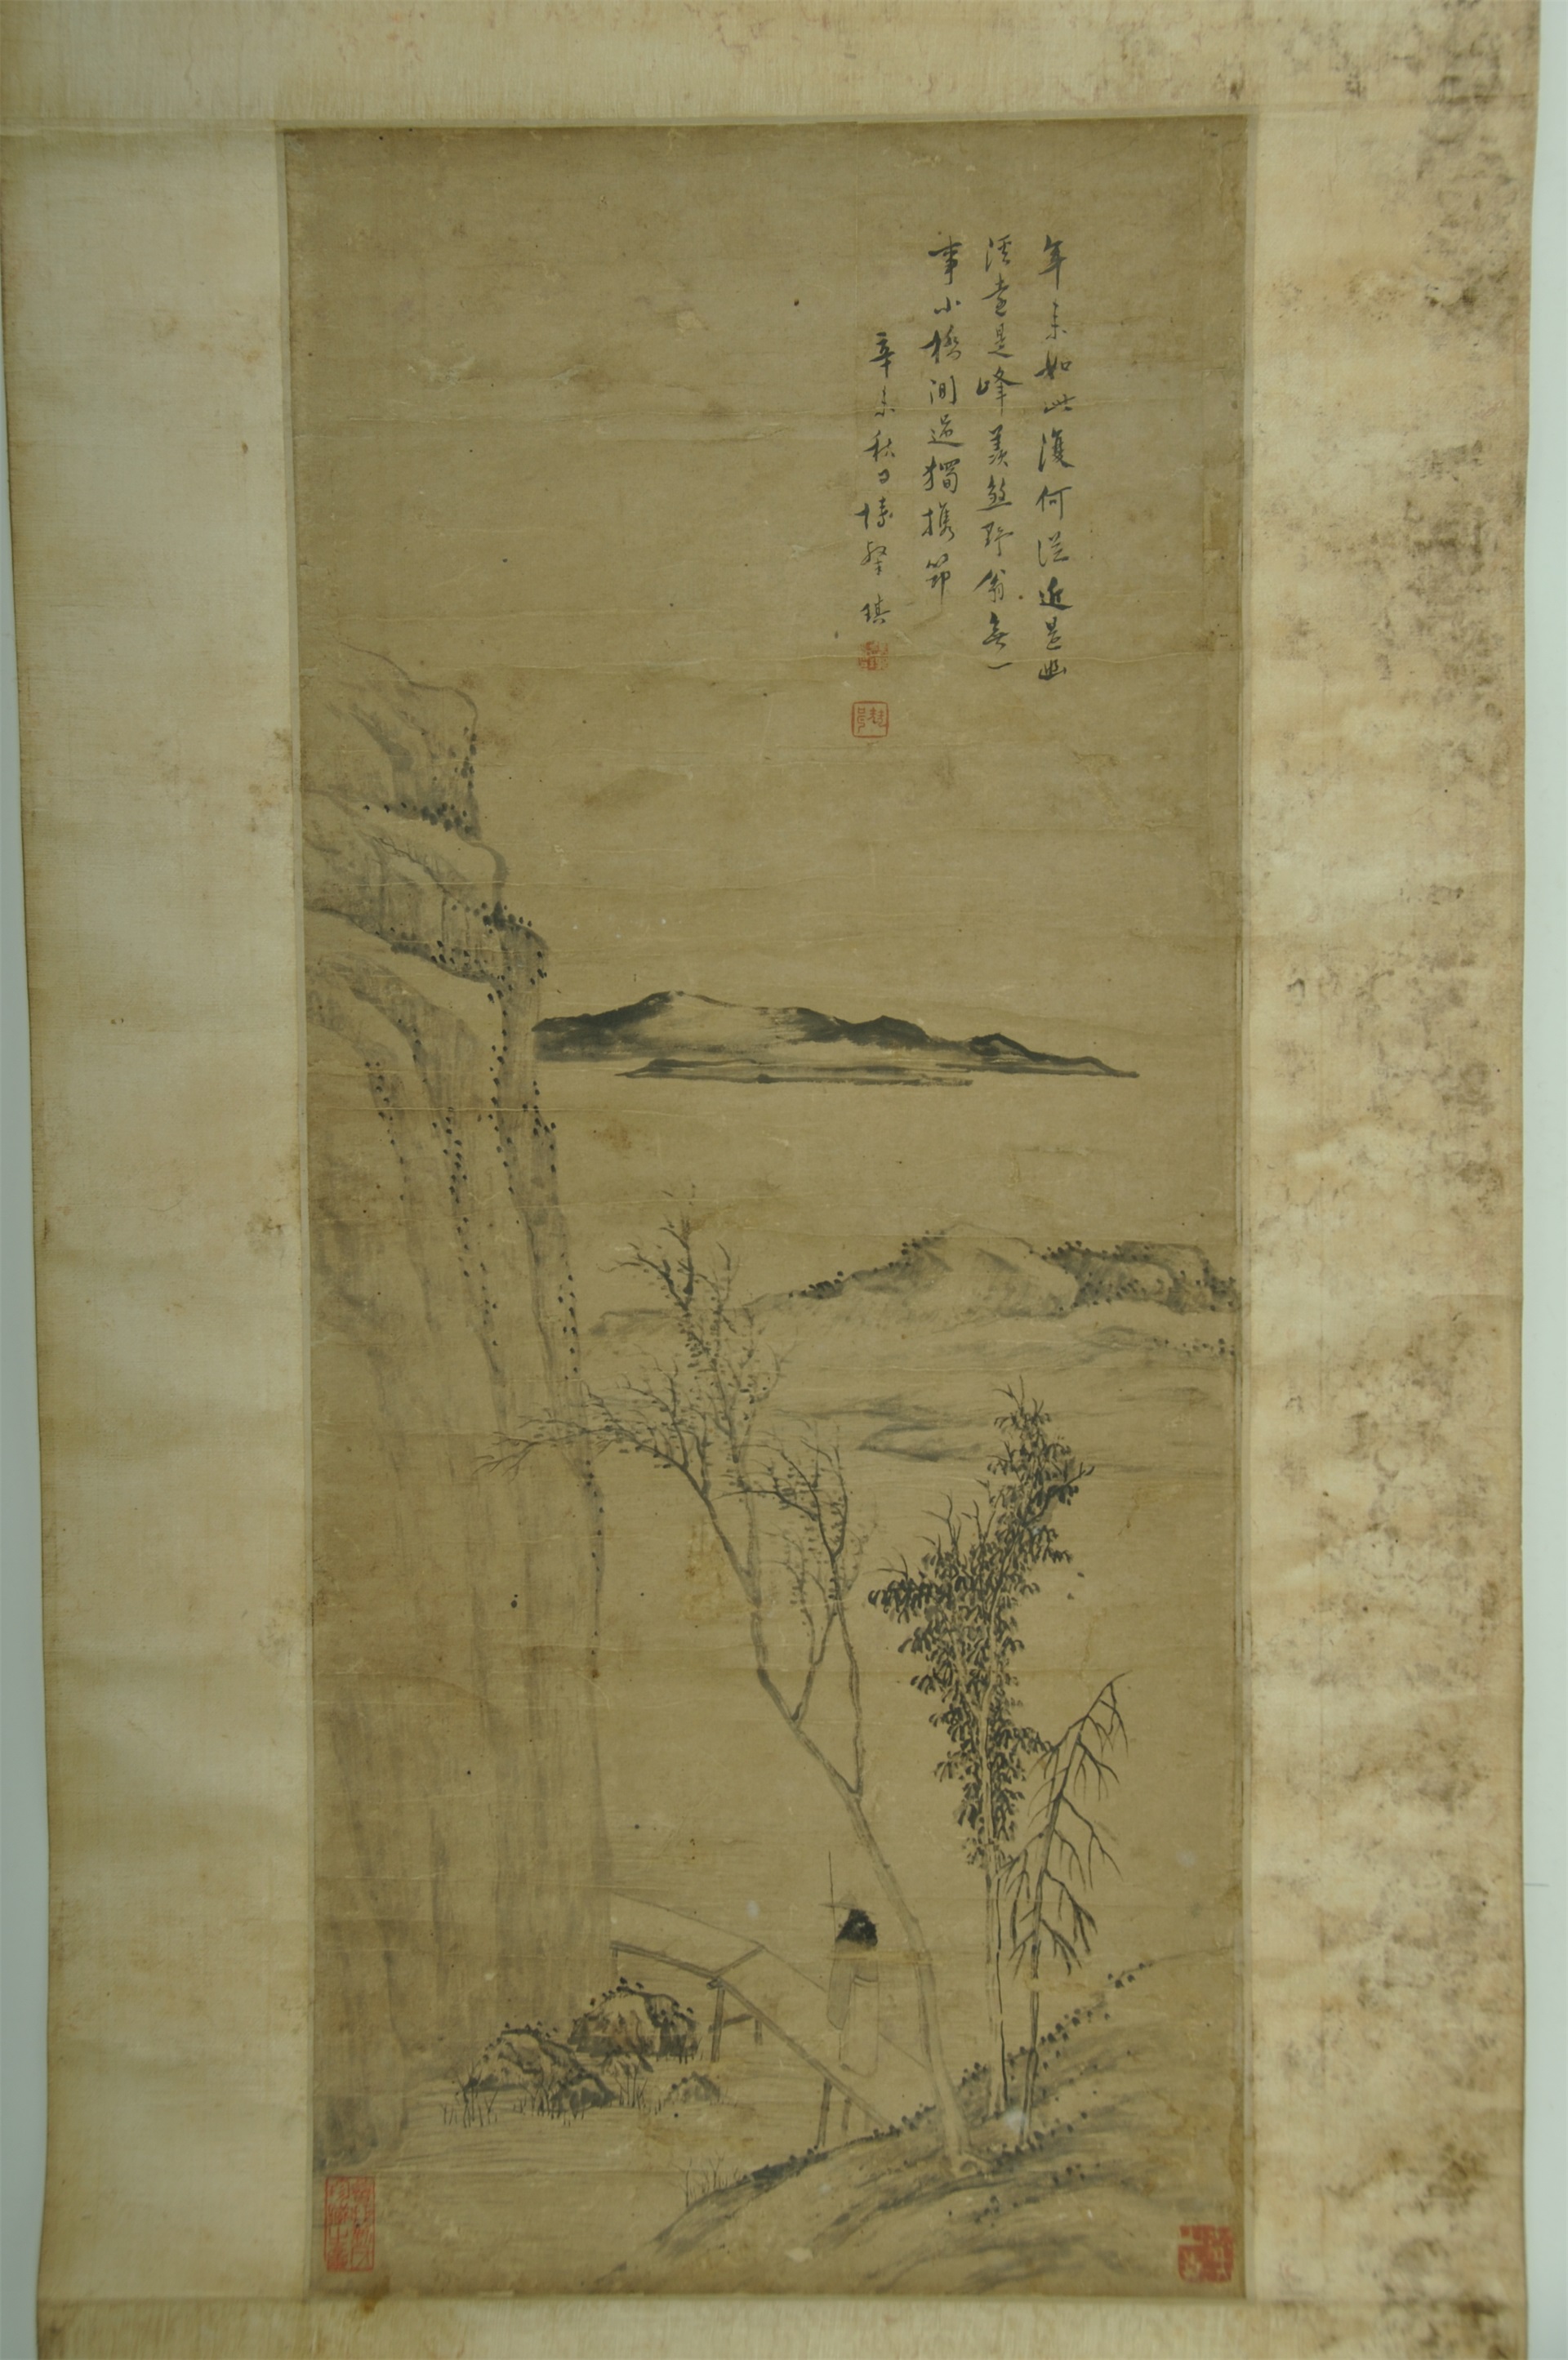 年来如此復何從近是幽
溪遠是峰羨煞野翁無一
事小橋閒過獨携筇
辛未秋日 琪